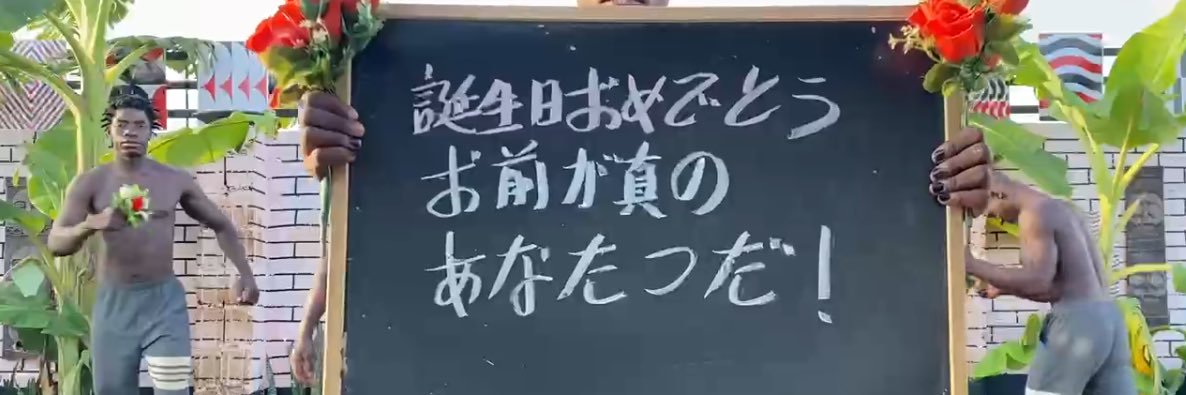 誕生日おめでとう
お前が真の
あなたつだ!